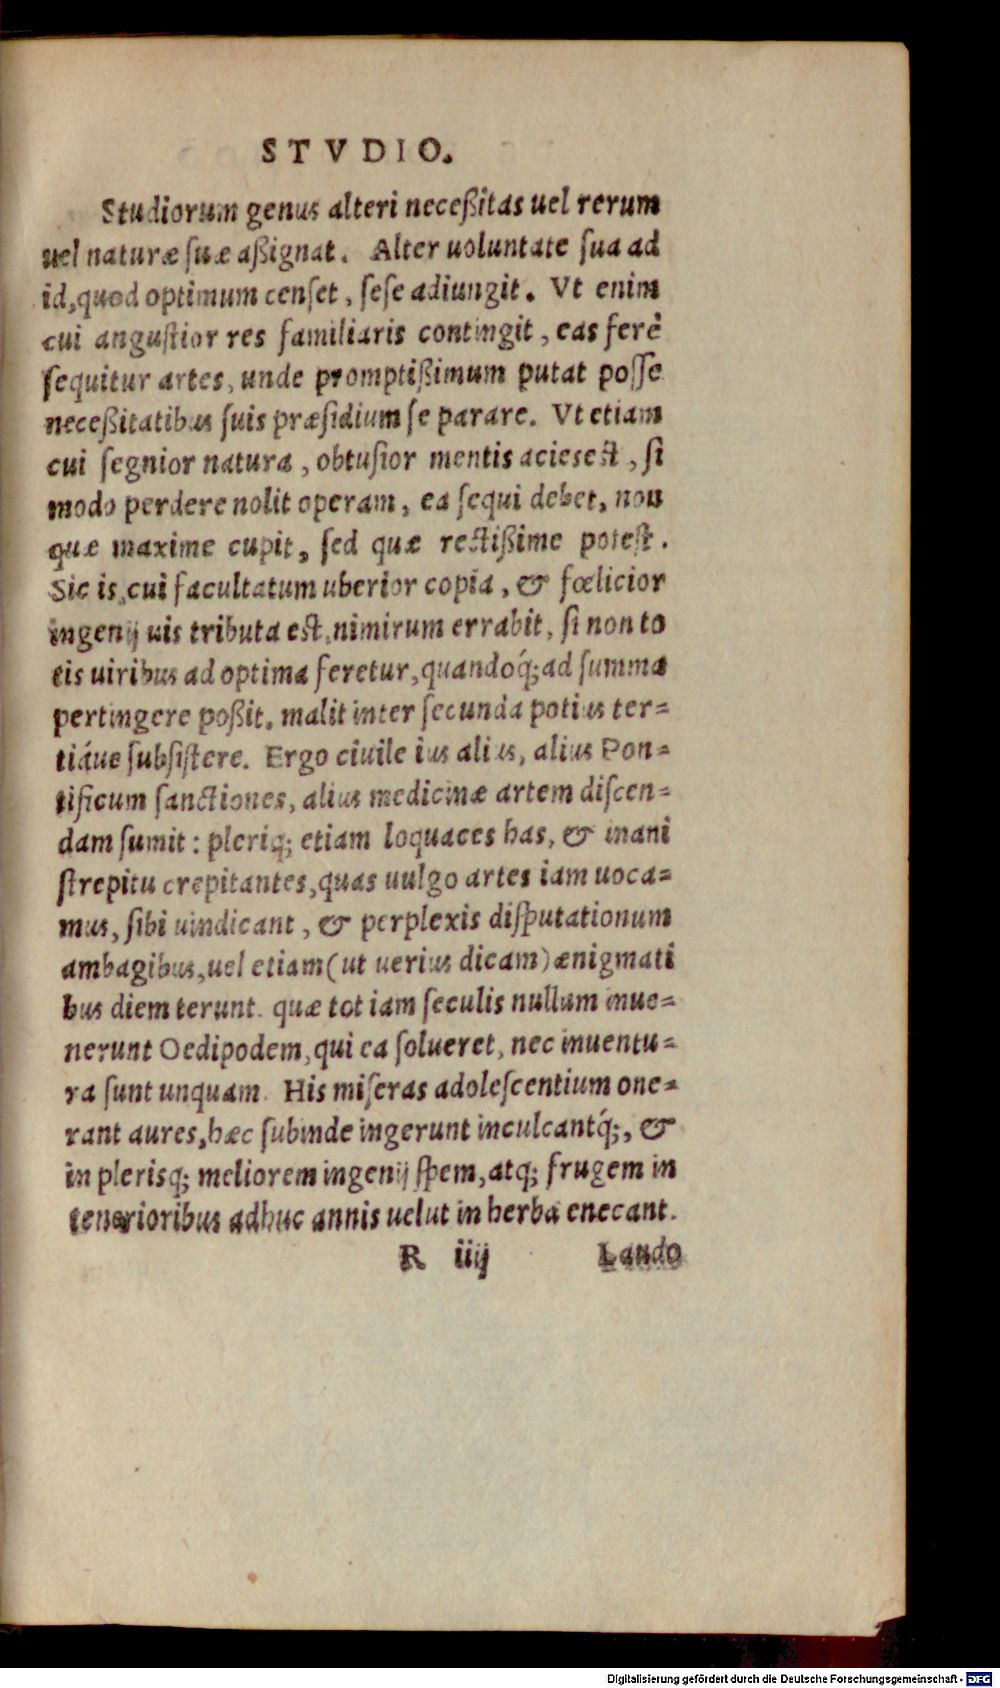 STVDIO.
Studiorum genus alteri neceßitas uel rerum
uel naturæ suæ aßignat. Alter uoluntate sua ad
id, quod optimum censet, sese adiungit. Vt enim
cui angustior res familiaris contingit, eas ferè
sequitur artes, unde promptißimum putat posse
neceßitatibus suis præsidium se parare. Vt etiam
cui segnior natura, obtusior mentis acies est, si
modo perdere nolit operam, ea sequi debet, non
quæ maxime cupit, sed quæ rectißime potest.
Sic is, cui facultatum uberior copia, & fœlicior
ingenij uis tributa est, nimirum errabit, si non to
tis uiribus ad optima feretur, quandoq́; ad summa
pertingere poßit, malit inter secunda potius ter=
tiáue subsistere. Ergo ciuile ius alius, alius Pon=
tificum sanctiones, alius medicinæ artem discen=
dam sumit: pleriq; etiam loquaces has, & inani
strepitu crepitantes, quas uulgo artes iam uoca=
mus, sibi uindicant, & perplexis disputationum
ambagibus, uel etiam (ut uerius dicam) ænigmati
bus diem terunt. quæ tot iam seculis nullum inue=
nerunt Oedipodem, qui ea solueret, nec inuentu=
ra sunt unquam. His miseras adolescentium one=
rant aures, hæc subinde ingerunt inculcantq́;, &
in plerisq; meliorem ingenij spem, atq; frugem in
tenerioribus adhuc annis uelut in herba enecant.
R iiij Laudo
Digitalisierung gefördert durch die Deutsche Forschungsgemeinschaft - DFG